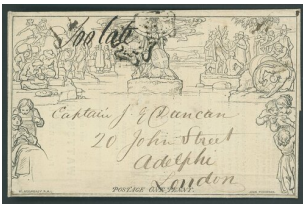 Too late
Captain J. G. Duncan
20 John Street
Adelphi
London
POSTAGE ONE PENNY.